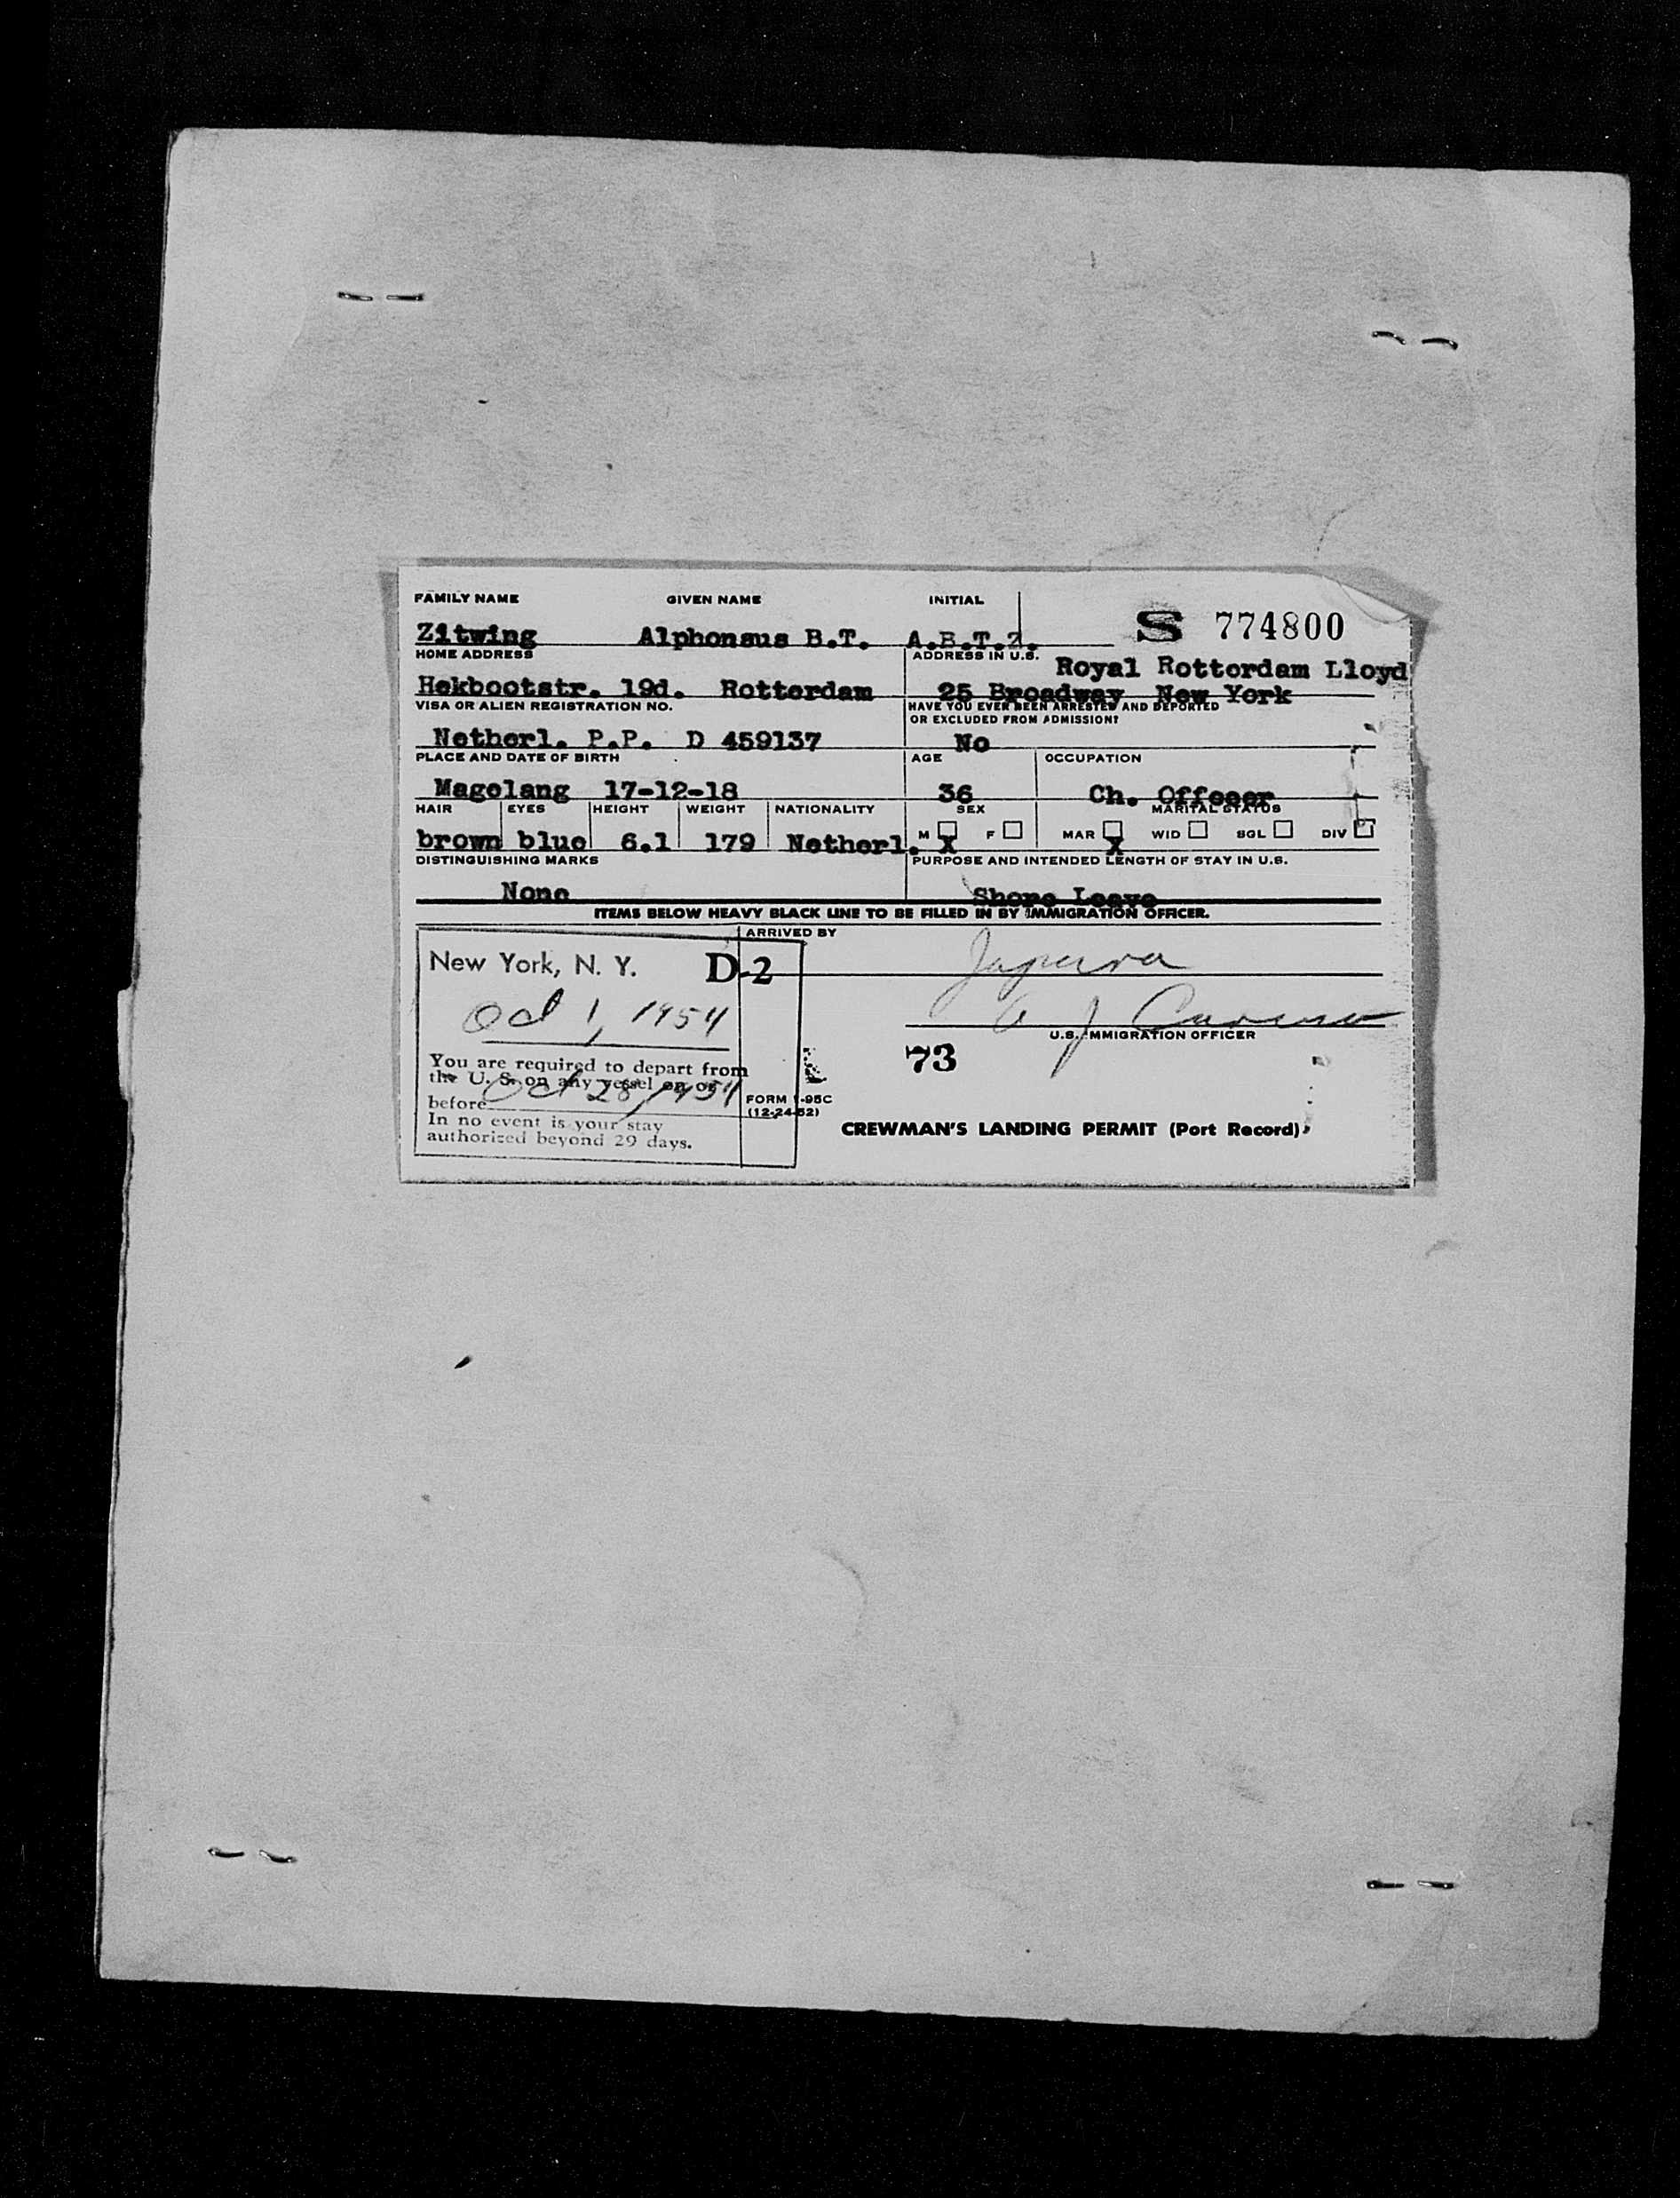 FAMILY NAME GIVEN NAME INITIAL
Zitwing Alphonsus B.T. A.B.T.Z. S 774800
HOME ADDRESS ADDRESS IN U.S. Royal Rotterdam Lloyd
Hekbootstr. 19d. Rotterdam 25 Broadway New York
VISA OR ALIEN REGISTRATION NO. HAVE YOU EVER BEEN ARRESTED AND DEPORTED
OR EXCLUDED FROM ADMISSION?
Netherl. P.P. D 459137 No
PLACE AND DATE OF BIRTH AGE OCCUPATION
Magelang 17-12-18 36 Ch. Offeeer
HAIR EYES HEIGHT WEIGHT NATIONALITY SEX MARITAL STATUS
brown blue 6.1 179 Netherl. M X F MAR X WID SGL DIV
DISTINGUISHING MARKS PURPOSE AND INTENDED LENGTH OF STAY IN U.S.
None Shore Leave
ITEMS BELOW HEAVY BLACK LINE TO BE FILLED IN BY IMMIGRATION OFFICER.
ARRIVED BY
New York, N. Y. D-2
Oct 1, 1954
U.S. IMMIGRATION OFFICER
73
You are required to depart from
the U. S. on any vessel on or
before Oct 28, 1954
In no event is your stay
authorized beyond 29 days.
FORM I-95C
(12-24-52)
CREWMAN'S LANDING PERMIT (Port Record)